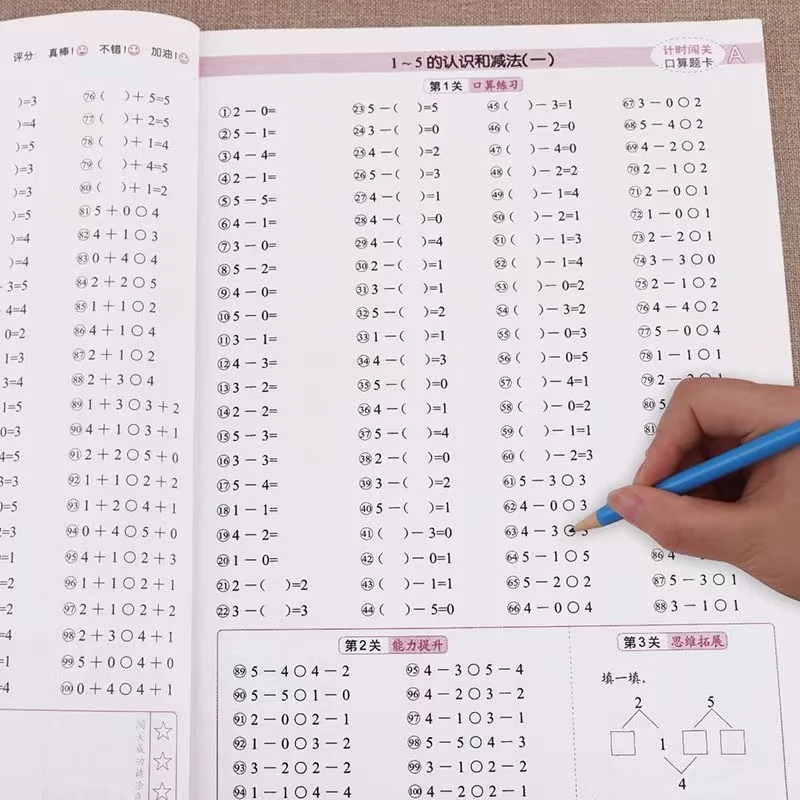 评分: 真棒! 不错! 加油!
)=3
)=4
)=5
)=3
)=3
)=5
)=4
)=4
3=5
4=4
0=2
1=3
3=4
1=5
0=3
4=5
0=5
2=3
=1
=2
=2
=4
=4
㊆⑥( )+5=5
⑦⑦( )+2=5
⑦⑧( )+1=4
⑦⑨( )+4=5
⑧⓪( )+1=2
81 5+0○4
82 4+1○3
83 0+4○4
84 2+2○5
85 1+1○2
86 4+1○4
87 2+1○2
88 2+3○4
89 1+3○3+2
90 4+1○3+1
91 2+2○5+0
92 1+1○2+2
93 1+2○4+1
94 0+4○5+0
95 4+1○2+3
96 1+1○2+1
97 1+2○2+2
98 2+3○4+1
99 5+0○4+0
100 0+4○4+1
1~5的认识和减法(一)
计时闯关
口算题卡
A
第1关 口算练习
①2-0=
②5-1=
③4-4=
④2-1=
⑤5-5=
⑥4-1=
⑦3-0=
⑧5-2=
⑨4-0=
⑩5-0=
⑪3-1=
⑫4-3=
⑬3-2=
⑭2-2=
⑮5-3=
⑯3-3=
⑰5-4=
⑱1-1=
⑲4-2=
⑳1-0=
㉑2-( )=2
㉒3-( )=3
㉓5-( )=5
㉔3-( )=0
㉕4-( )=2
㉖5-( )=3
㉗4-( )=1
㉘4-( )=0
㉙4-( )=4
㉚2-( )=1
㉛3-( )=1
㉜5-( )=2
㉝1-( )=1
㉞4-( )=3
㉟5-( )=0
㊱4-( )=1
㊲5-( )=4
㊳2-( )=0
㊴3-( )=2
㊵5-( )=1
㊶( )-3=0
㊷( )-0=1
㊸( )-1=1
㊹( )-5=0
㊺( )-3=1
㊻( )-2=0
㊼( )-4=0
㊽( )-2=2
㊾( )-1=4
㊿( )-2=1
51 ( )-1=3
52 ( )-1=4
53 ( )-0=2
54 ( )-3=2
55 ( )-0=3
56 ( )-0=5
57 ( )-4=1
58 ( )-0=2
59 ( )-1=1
60 ( )-2=3
61 5-3○3
62 4-0○3
63 4-3○3
64 5-1○5
65 5-2○2
66 4-0○4
67 3-0○2
68 5-4○2
69 4-2○2
70 2-1○2
71 2-0○1
72 1-0○1
73 2-2○1
74 3-3○0
75 2-1○2
76 4-4○2
77 5-0○4
78 1-1○1
79 2-
80 5
86 4
87 5-3○1
88 3-1○1
第2关 能力提升
89 5-4○4-2
90 5-5○1-0
91 2-0○2-1
92 1-0○3-2
93 3-2○2-2
94 1-0○4-1
95 4-3○5-4
96 4-2○3-2
97 4-1○3-1
98 5-5○4-3
99 3-1○2-2
100 4-2○2-1
第3关 思维拓展
填一填。
2 5
1
4
闯关成功请涂色